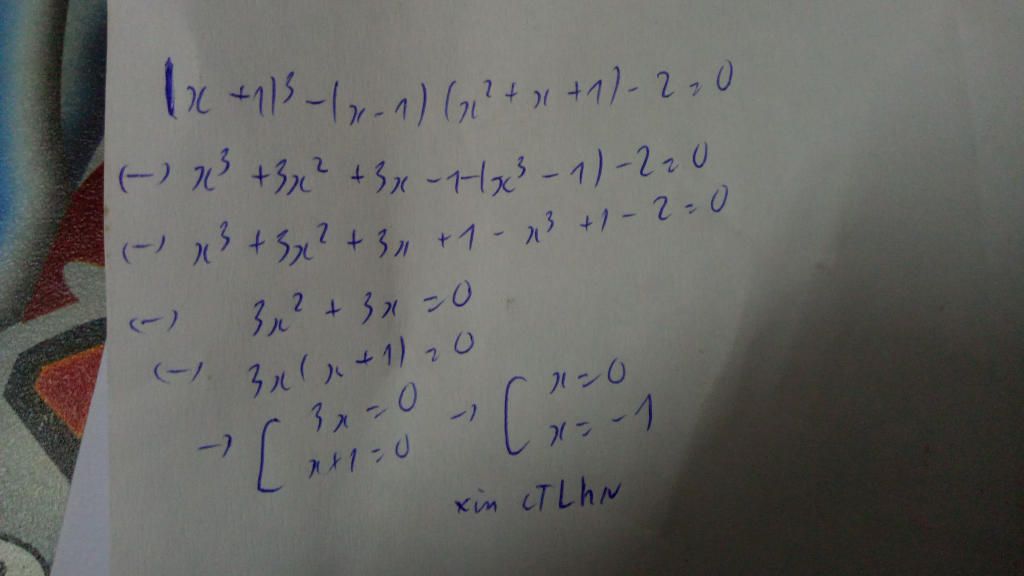 (x + 1)³ - (x - 1) (x² + x + 1) - 2 = 0
(-) x³ + 3x² + 3x - 1 - (x³ - 1) - 2 = 0
(-) x³ + 3x² + 3x + 1 - x³ + 1 - 2 = 0
(-) 3x² + 3x = 0
(-) 3x(x + 1) = 0
→ [ 3x = 0 → [ x = 0
x + 1 = 0 x = -1
xin CTLHN